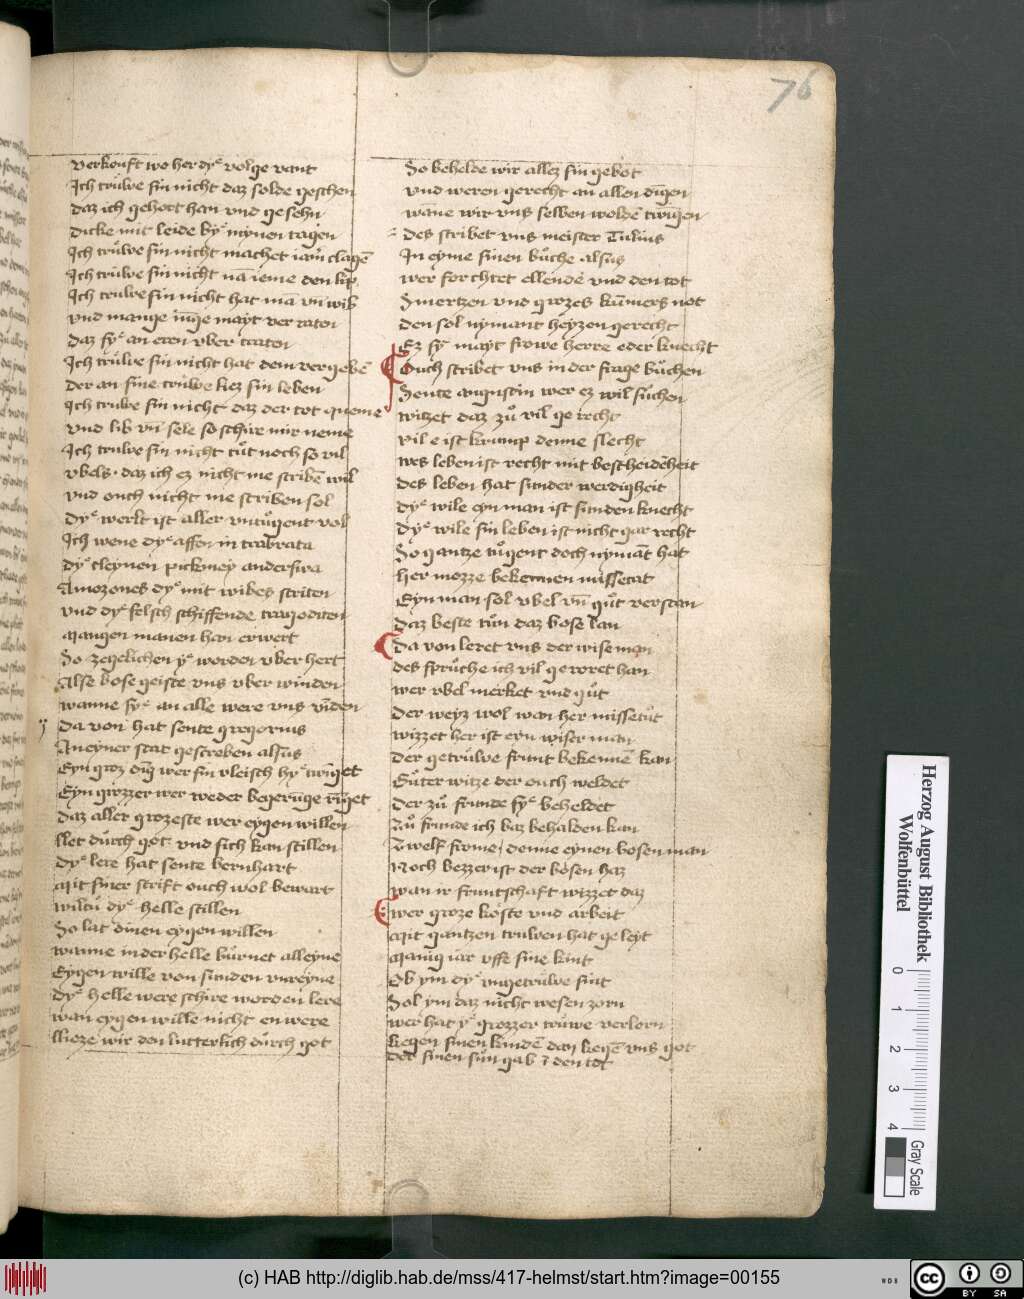 76
verkouft wo her dyͤ volge vant
Ich truͤwe sin nicht daz solde geschen
daz ich gehort han vnd gesehn
dicke mit leide byͤ mynen tagen
Ich truͤwe sin nicht machet iam̄ clagē
Ich truͤwe sin nicht nā ieme den lip
Ich truͤwe sin nicht hat mā vn̄ wib
vnd mange iūge mayt verraten
daz syͤ an eren vber traten
Ich truͤwe sin nicht hat dem vergebē
Der an sine truͤwe liez sin leben
Ich truͤwe sin nicht daz der tot queme
vnd lib vn̄ sele so schire mir neme
Ich truͤwe sin nicht tuͦt noch so vil
vbels. daz ich ez nicht me scribē wil
vnd ouch nicht me scriben sol
dyͤ werlt ist aller vntuͦgent vol
Ich wene dyͤ affen in trabrata
dyͤ cleynen pickmey anderswa
Amozones dyͤ mit wibes striten
vnd dyͤ selsch schiffende tragoditen
Mangen manen han erwert
So zegelichen yͤ worden vber hert
Alse bose geiste vns vber winden
wanne syͤ an alle were vns vīden
Da von hat sente gregorius
An eyner stat gescreben alsus
Eyn groz dīg wer sin vleisch hyͤ twīget
Eyn grozzer wer weder begerūge rīget
Daz aller grozeste wer eygen willen
llet durch got vnd sich kan stillen
dyͤ lere hat sente bernhart
Mit siner scrift ouch wol bewart
wiltu dyͤ helle stillen
So lat dinen eygen willen
wanne in der helle buͤrnet alleyne
Eygen wille von sunden vnreyne
dyͤ helle were schire worden lere
wan eygen wille nicht en were
llieze wir den lutterlich durch got
So behelde wir allez sin gebot
vnd weren gerecht an allen dīgen
wāne wir vns selben woldē twīgen
des scribet vns meister Tulius
In eyme sinen buͦche alsus
wer forchtet ellende vnd den tot
Smertzen vnd grozes kūmers not
den sol nymant heyzen gerecht
Ez syͤ mayt frowe herre oder knecht
Ouch scribet vns in der frage buͦchen
Sente augustin wer ez wil suͦchen
witzet daz zuͦ vil gerecht
vil e ist krump denne slecht
wes leben ist recht mit bescheidēheit
des leben hat sunder werdigheit
dyͤ wile eyn man ist sunden knecht
dyͤ wile sin leben ist nicht gar recht
So gantze tuͦgent doch nymāt hat
her mozze bekennen missetat
Eyn man sol vbel vn̄ guͦt verstan
daz beste tuͦn daz bose lan
Da von leret vns der wise man
des spruͤche ich vil gehoret han
wer vbel merket vnd guͦt
der weyz wol wan her missetuͦt
wizzet her ist eyn wiser man
der getruͤwe frunt bekennē kan
Guͦter witze der ouch weldet
der zuͦ frunde syͤ beheldet
Zuͦ frunde ich baz behalden kan
Twelf frome, denne eynen bosen man
Noch bezzer ist der bosen haz
wan ir fruntschaft wizzet daz
wer groze koste vnd arbeit
Mit gantzen truwen hat geleyt
Manig iar vffe sine kint
Ob ym dyͤ vngetruͤwe sint
Sol ym daz nicht wesen zorn
wer hat yͤ grozzer truͤwe verlorn
kegen sinen kindē dan kegē vns got
der sinen sun gab ī den tot
Herzog August Bibliothek
Wolfenbüttel
0 1 2 3 4
Gray Scale
(c) HAB http://diglib.hab.de/mss/417-helmst/start.htm?image=00155
WDB
cc BY SA